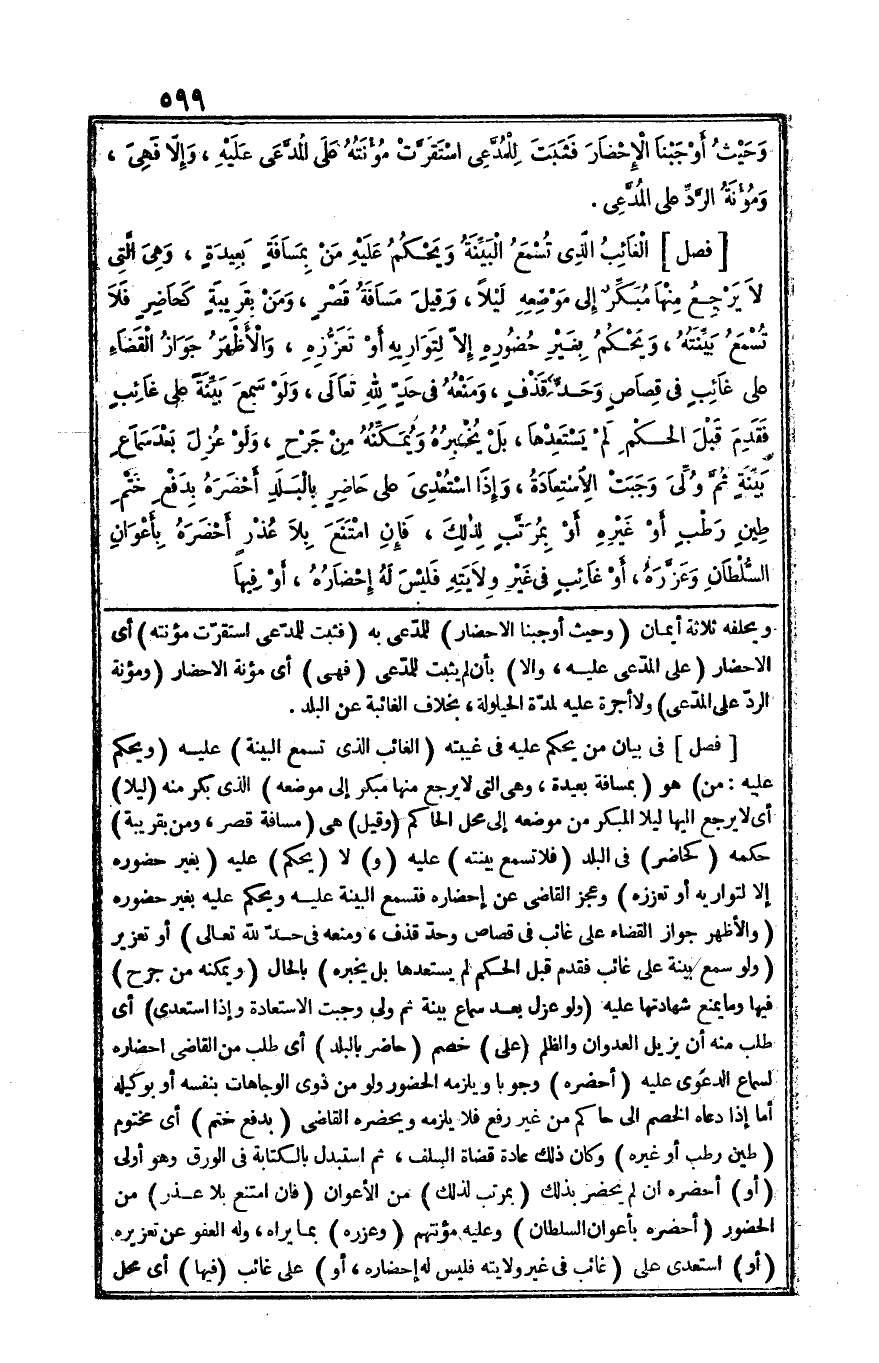 ٥٩٩
وَحَيْثُ أَوْجَبْنَا الْإِحْضَارَ فَثَبَتَ لِلْمُدَّعِى اسْتَقَرَّتْ مُؤْنَتُهُ عَلَى الْمُدَّعَى عَلَيْهِ ، وَإِلَّا فَهِىَ ،
وَمُؤْنَةُ الرَّدِّ عَلى المُدَّعِى .
[ فصل ] الْغَائِبُ الَّذِى تُسْمَعُ الْبَيِّنَةُ وَيَحْكُمُ عَلَيْهِ مَنْ بِمَسَافَةٍ بَعِيدَةٍ ، وَهِىَ الَّتِى
لاَ يَرْجِعُ مِنْهَا مُبَكِّرٌ إلى مَوْضِعِهِ لَيْلاً ، وَقِيلَ مَسَافَةُ قَصْرٍ ، وَمَنْ بِقَرِيبَةٍ كَحَاضِرٍ فَلاَ
تُسْمَعُ بَيِّنَتُهُ ، وَيَحْكُمُ بِغَيْرِ حُضُورِهِ إِلاَّ لِتَوَارِيهِ أَوْ تَعَزُّزِهِ ، وَالْأَظْهَرُ جَوَازُ الْقَضَاءِ
عَلى غَائِبٍ فى قِصَاصٍ وَحَدِّ قَذْفٍ ، وَمَنْعُهُ فى حَدٍّ لِلهِ تَعَالَى ، وَلَوْ سَمِعَ بَيِّنَةً عَلى غَائِبٍ
فَقَدِمَ قَبْلَ الحكْمِ لَمْ يَسْتَعِدْهَا ، بَلْ يُخْبِرُهُ وَيُمَكِّنُهُ مِنْ جَرْحٍ ، وَلَوْ عُزِلَ بَعْدَ سَمَاعِ
بَيِّنَةٍ ثُمَّ وُلِّىَ وَجَبَتْ الِاسْتِعَادَةُ ، وَإِذَا اسْتُعْدِىَ عَلى حَاضِرٍ بِالْبَلَدِ أَحْضَرَهُ بِدَفْعِ خَتْمِ
طِينٍ رَطْبٍ أَوْ غَيْرِهِ أَوْ بِمُرَتَّبٍ لِذٰلِكَ ، فَإِنِ امْتَنَعَ بِلاَ عُذْرٍ أَحْضَرَهُ بِأَعْوَانِ
السُّلْطَانِ وَعَزَّرَهُ ، أَوْ غَائِبٍ فى غَيْرِ وِلاَيَتِهِ فَلَيْسَ لَهُ إِحْضَارُهُ ، أَوْ فِيهَا
ويحلفه ثلاثة أيمان ( وحيث أوجبنا الاحضار ) للمدّعى به ( فثبت للمدّعى استقرّت مؤنته ) أى
الاحضار ( على المدّعى عليه ، والا ) بأن لم يثبت للمدّعى ( فهى ) أى مؤنة الاحضار ( ومؤنة
الردّ على المدّعى ) ولا أجرة عليه لمدّة الحيلولة ، بخلاف الغائبة عن البلد .
[ فصل ] فى بيان من يحكم عليه فى غيبته ( الغائب الذى تسمع البينة ) عليه ( ويحكم
عليه : من ) هو ( بمسافة بعيدة ، وهى التى لا يرجع منها مبكر إلى موضعه ) الذى بكر منه ( ليلا )
أى لا يرجع اليها ليلا المبكر من موضعه إلى محل الحاكم ( وقيل ) هى ( مسافة قصر ، ومن بقريبة )
حكمه ( كحاضر ) فى البلد ( فلا تسمع بينته ) عليه ( و ) لا ( يحكم ) عليه ( بغير حضوره
إلا لتواريه أو تعززه ) وعجز القاضى عن إحضاره فتسمع البينة عليه ويحكم عليه بغير حضوره
( والأظهر جواز القضاء على غائب فى قصاص وحدّ قذف ، ومنعه فى حدّ لله تعالى ) أو تعزير
( ولو سمع بينة على غائب فقدم قبل الحكم لم يستعدها بل يخبره ) بالحال ( ويمكنه من جرح )
فيها وما يمنع شهادتها عليه ( ولو عزل بعد سماع بينة ثم ولى وجبت الاستعادة وإذا استعدى ) أى
طلب منه أن يزيل العدوان والظلم ( على ) خصم ( حاضر بالبلد ) أى طلب من القاضى احضاره
لسماع الدعوى عليه ( أحضره ) وجوبا ويلزمه الحضور ولو من ذوى الوجاهات بنفسه أو بوكيله
أما إذا دعاه الخصم الى حاكم من غير رفع فلا يلزمه ويحضره القاضى ( بدفع ختم ) أى مختوم
( طين رطب أو غيره ) وكان ذلك عادة قضاة السلف ، ثم استبدل بالكتابة فى الورق وهو أولى
( أو ) أحضره ان لم يحضر بذلك ( بمرتب لذلك ) من الأعوان ( فان امتنع بلا عذر ) من
الحضور ( أحضره بأعوان السلطان ) وعليه مؤنتهم ( وعزره ) بما يراه ، وله العفو عن تعزيره
( أو ) استعدى على ( غائب فى غير ولايته فليس له إحضاره ، أو ) على غائب ( فيها ) أى محل